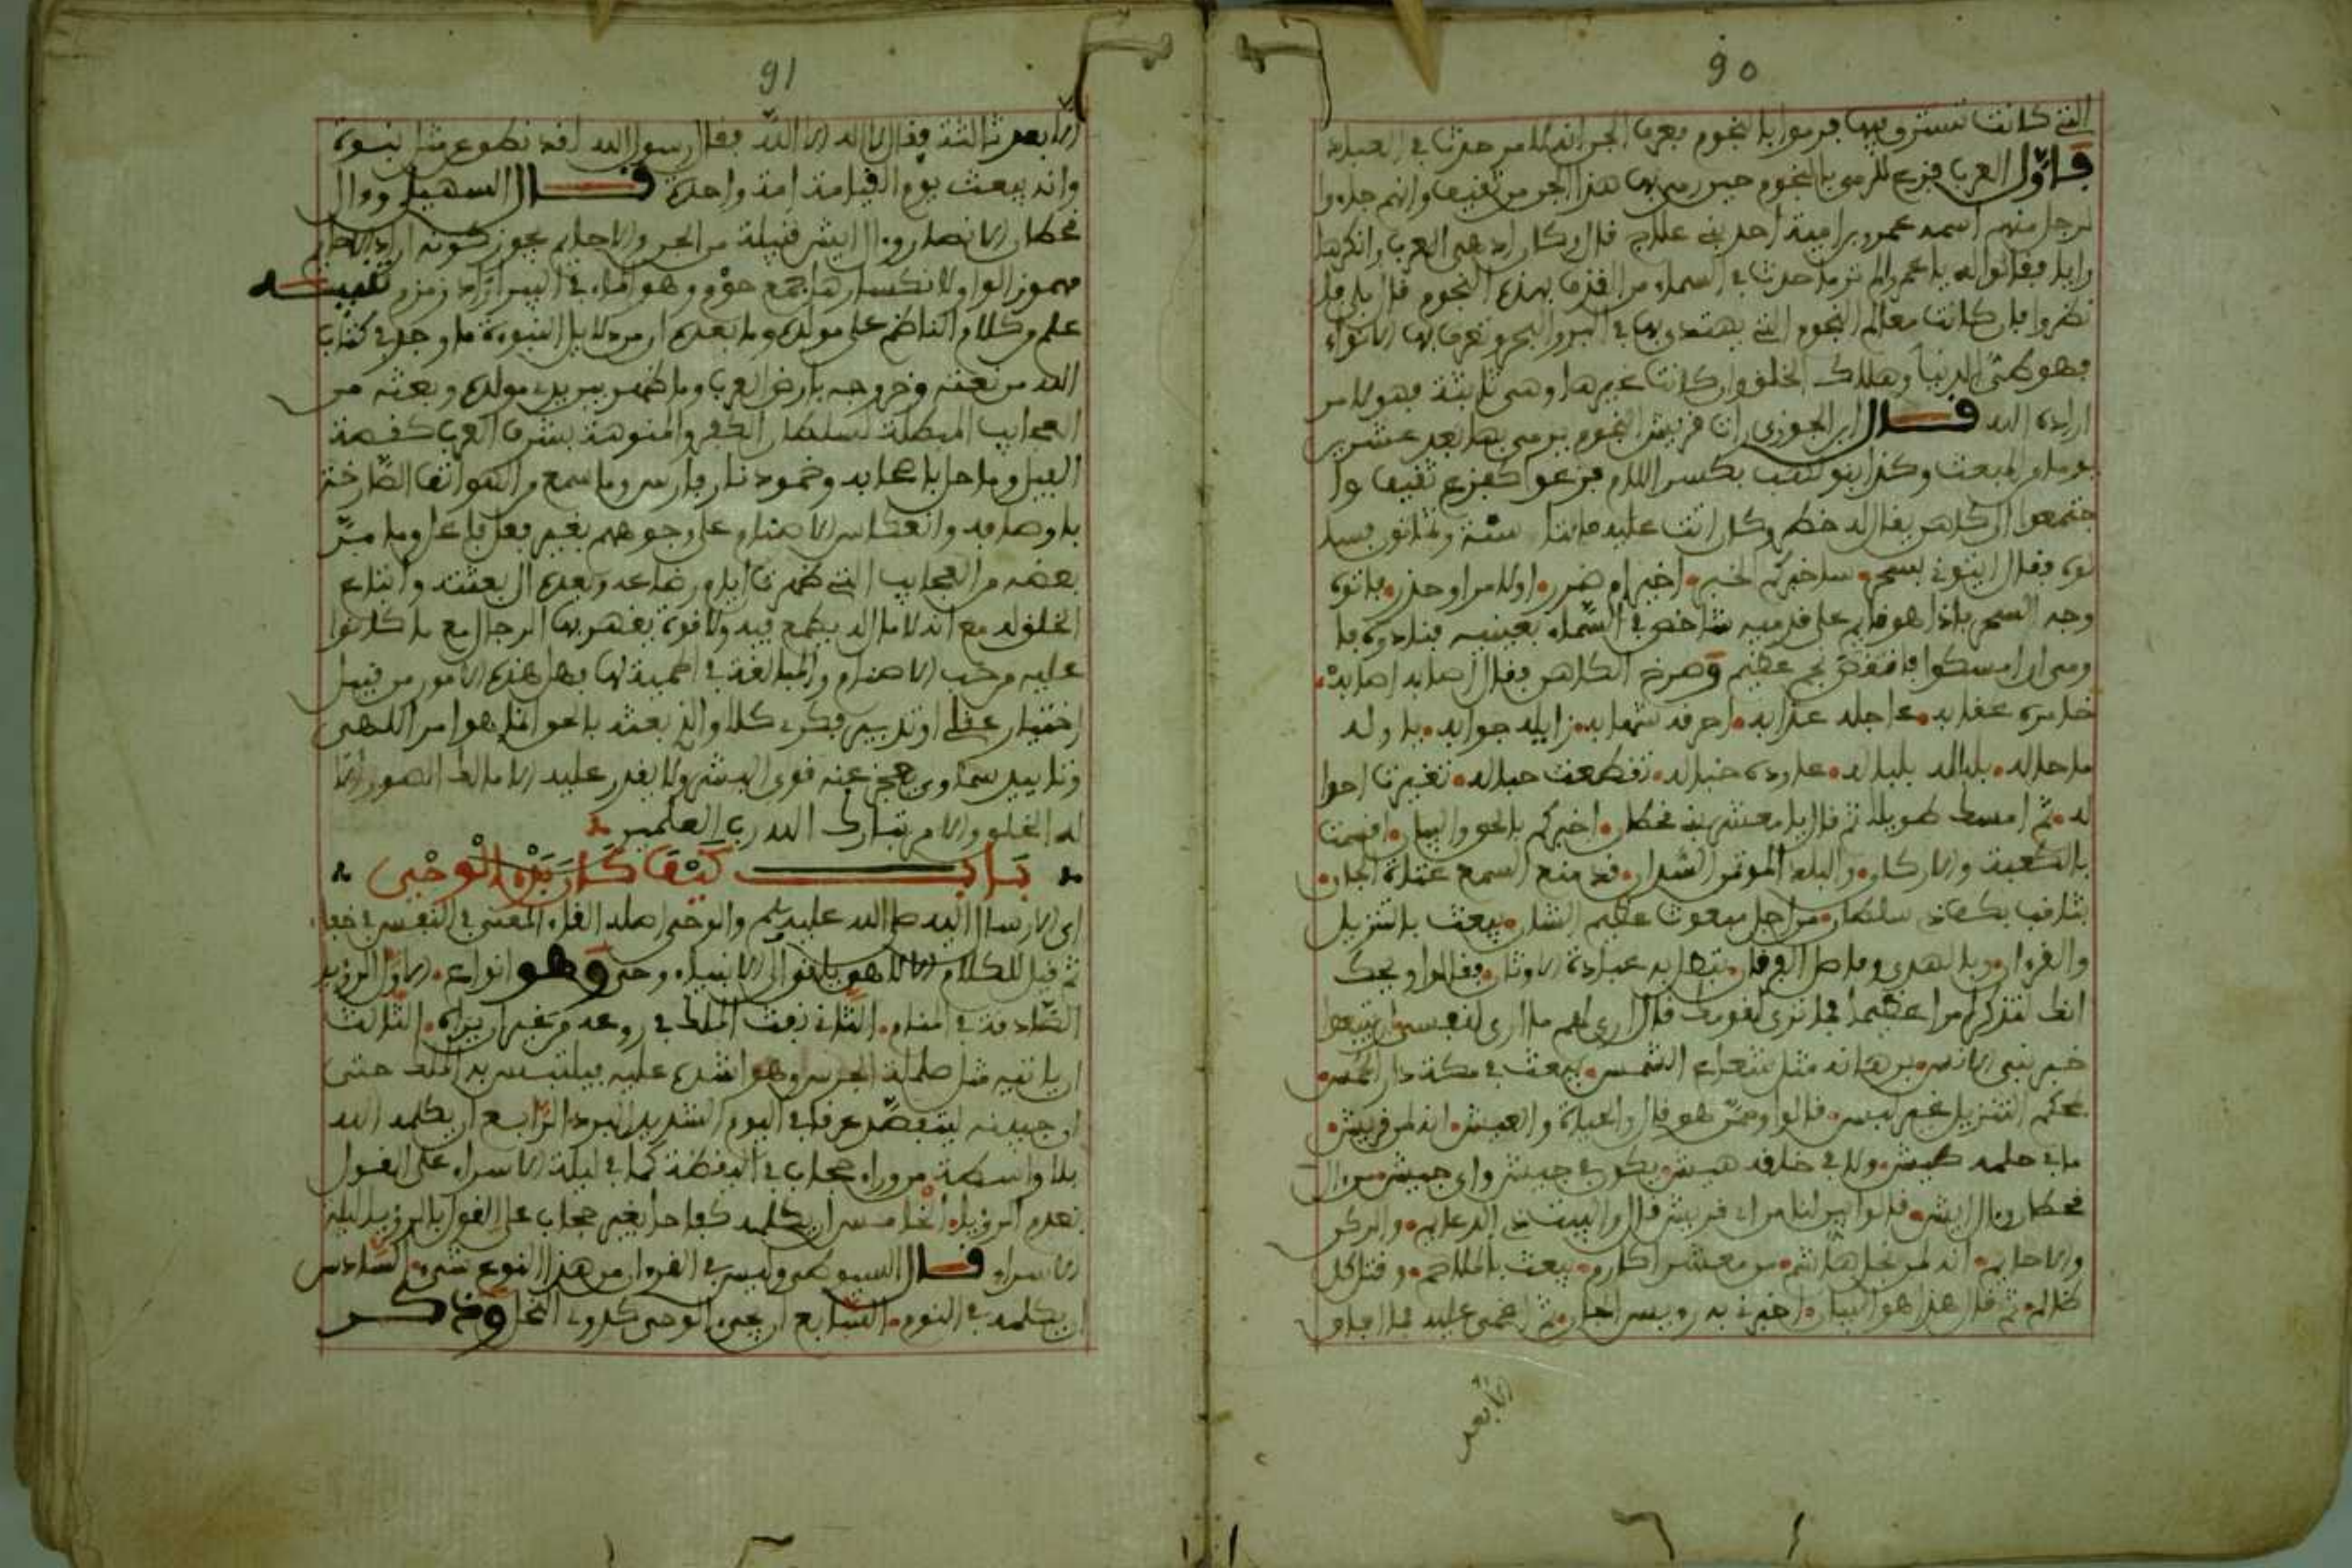 90
التي كانت تسترق بها فرموا بالنجوم بعرف الجن ان ذلك لامر حدث في العباد
فاول العرب فزع للرمي بالنجوم حين رمي بها هذا الحي من ثقيف وانهم جاءوا
لرجل منهم اسمه عمرو بن امية احد بني علاج قال وكان ادهى العرب وانكرها
رايا فقالوا له يا عمرو الم تر ما حدث في السماء من القذف بهذه النجوم قال بلى فا
نظروا فان كانت معالم النجوم التي يهتدى بها في البر والبحر وتعرف بها الانواء
فهو طي الدنيا وهلاك الخلق وان كانت غيرها وهي ثابتة فهو لامر
اراده الله قال ابن الجوزي ان قريش النجوم يرمى بها بعد عشرين
يوما من المبعث وكذا بنو لهب بكسر اللام فزعوا كفزع ثقيف وا
جتمعوا الى كاهن يقال له خطر وكان اتت عليه مائتا سنة وثمانون فسا
لوه فقال ايتوني بسحر ساخبركم الخبر اخير ام ضرر او لامن او حذر فاتوه
وجه السحر فاذا هو قايم على قدميه شاخص في السماء بعينيه فنادوه فا
ومى ان امسكوا فانقض نجم عظيم وصرخ الكاهن فقال اصابه اصابه
خامره عقابه عاجله عذابه احرقه شهابه زايله جوابه يا وله
ما حاله بلباله بلباله عاوده خباله تقطعت حباله تغيرت احوا
له ثم امسك طويلا ثم قال يا معشر بني قحطان اخبركم بالحق والبيان اقسمت
بالكعبة والاركان والبلد الموتمن السدان قد منع السمع عتاة الجان
بثاقب بكف ذي سلطان من اجل مبعوث عظيم الشان يبعث بالتنزيل
والقرءان وبالهدى وفاصل الفرقان تبطل به عبادة الاوثان فقالوا ويحك
انك لتذكر امرا عظيما فما ترى لقومك قال ارى لهم ما ارى لنفسي ان يتبعوا
خير نبي الانس برهانه مثل شعاع الشمس يبعث في مكة دار الحمس
بمحكم التنزيل غير لبس قالوا وممن هو قال والحياة والعيش انه لمن قريش
ما في حلمه طيش ولا في خلقه هيش يكون في جيش واي جيش من ال
قحطان وال ايش قالوا بين لنا من اي قريش قال والبيت ذي الدعايم والركن
والاحايم انه لمن نجل هاشم من معشر اكارم يبعث بالملاحم وقتل كل
ظالم ثم قال هذا هو البيان اخبرني به رييس الجان ثم اغمي عليه فما افاق
الا بعد
91
الا بعد ثالثة فقال لا اله الا الله فقال رسول الله لقد نطق عن مثل نبوة
وانه يبعث يوم القيامة امة واحدة قال السهيلي وءال
قحطان الانصار وءال ايش قبيلة من الجن والاحايم يجوز كونه اراد الاحاوم
مهموز الواو لانكسارها جمع حوم وهو الماء في البير اراد زمزم تنبيه
علم من كلام الناظم على مولده وما بعده ان من دلايل النبوة ما وجد في كتاب
الله من نعته وخروجه بارض العرب وما ظهر بين يدي مولده وبعثه من
العجايب المبطلة لسلطان الكفر والمنوهة بشرف العرب كقصة
الفيل وما حل باصحابه وخمود نار فارس وما سمع من الهواتف الصارخة
باوصافه وانعكاس الاصنام على وجوههم بغير فعل فاعل وما مر
بعضه من العجايب التي ظهرت ايام رضاعه وبعده الى بعثته واتباع
الخلق له مع انه لا مال له يطمع فيه ولا قوة يقهر بها الرجال مع ما كانوا
عليه من حب الاصنام والمبالغة في الحمية لها فهل هذه الامور من قبيل
اختيار عقلي او تدبير فكري كلا والذي بعثه بالحق انما هو امر اللهي
وتاييد سماوي يعجز عنه قوى البشر ولا يقدر عليه الا مالك الصور الا
له الخلق والامر تبارك الله رب العلمين
باب كيف كان بدء الوحي
اي الارسال اليه صلى الله عليه وسلم والوحي اصله القاء المعنى في النفس في خفاء
ثم قيل للكلام الالاهي يلقى الى الانبياء وحي وهو انواع الاول الرؤيا
الصادقة في المنام الثاني نفث الملك في روعه من غير ان يراه الثالث
ان ياتيه مثل صلصلة الجرس وهو اشده عليه فيلتبس به الملك حتى
ان جبينه ليتفصد عرقا في اليوم الشديد البرد الرابع ان يكلمه الله
بلا واسطة من وراء حجاب في اليقظة كما في ليلة الاسراء على القول
بعدم الرؤيا الخامس ان يكلمه كفاحا بغير حجاب على القول بالرؤيا ليلة
الاسراء قال السيوطي وليس في القرءان من هذا النوع شيء السادس
ان يكلمه في النوم السابع ان يجيء الوحي كدوي النحل وذكر